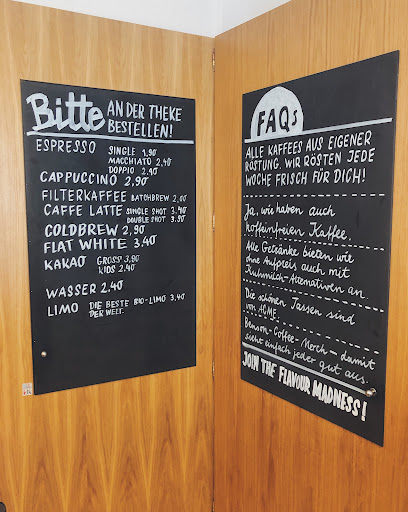 Bitte AN DER THEKE
BESTELLEN!
ESPRESSO SINGLE 1,90
MACCHIATO 2,40
DOPPIO 2,40
CAPPUCCINO 2,90
FILTERKAFFEE BATCHBREW 2,00
CAFFE LATTE SINGLE SHOT 3,40
DOUBLE SHOT 3,90
COLDBREW 2,90
FLAT WHITE 3,40
KAKAO GROSS 3,90
KIDS 2,40
WASSER 2.40
LIMO DIE BESTE BIO-LIMO 3,40
DER WELT.
FAQs
ALLE KAFFEES AUS EIGENER
RÖSTUNG. WIR RÖSTEN JEDE
WOCHE FRISCH FÜR DICH!
Ja, wir haben auch
koffeinfreien Kaffee.
Alle Getränke bieten wir
ohne Aufpreis auch mit
Kuhmilch-Alternativen an.
Die schönen Tassen sind
von ACME.
Benson-Coffee-Merch – damit
sieht einfach jeder gut aus.
JOIN THE FLAVOUR MADNESS!